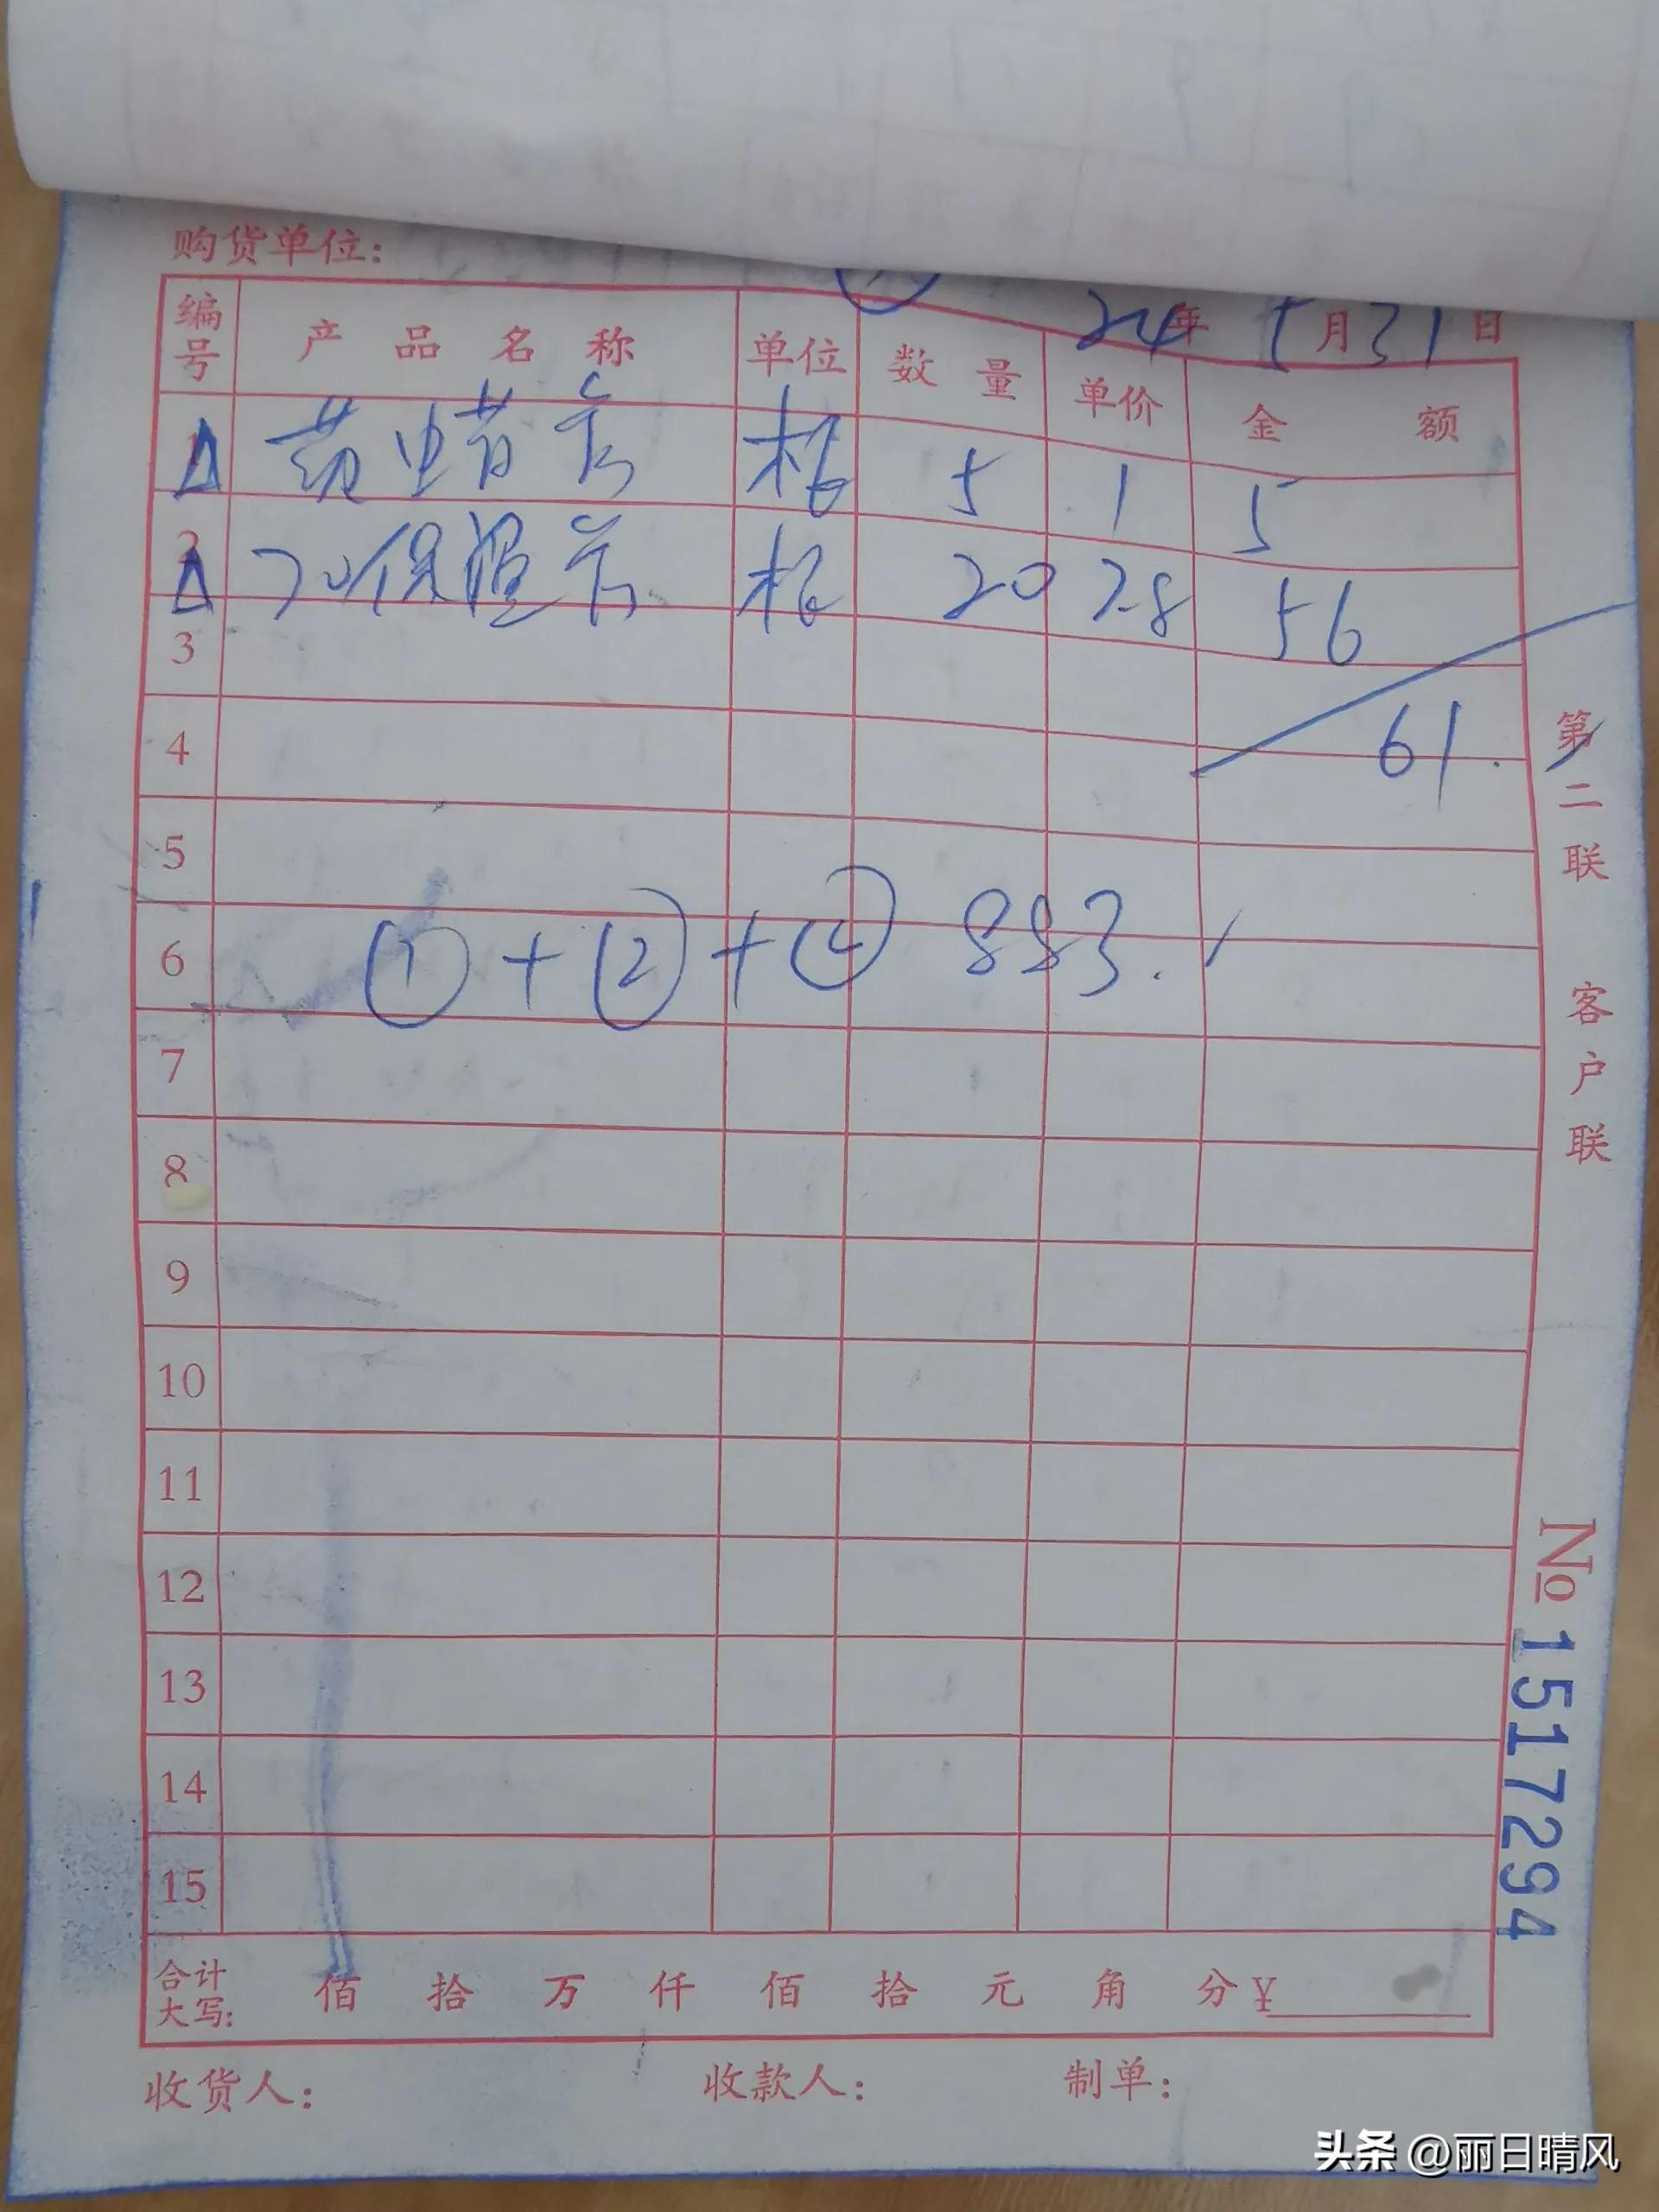 购货单位：
24年5月31日
编号 产品名称 单位 数量 单价 金额
1 药虫蜡卡 根 5 1 5
2 20保温卡 根 20 2.8 56
3
61.
4
5
6 ①+②+④ 883.
7
8
9
10
11
12
13
14
15
合计大写: 佰 拾 万 仟 佰 拾 元 角 分 ¥
收货人: 收款人: 制单:
第二联 客户联
№ 1517294
头条 @丽日晴风